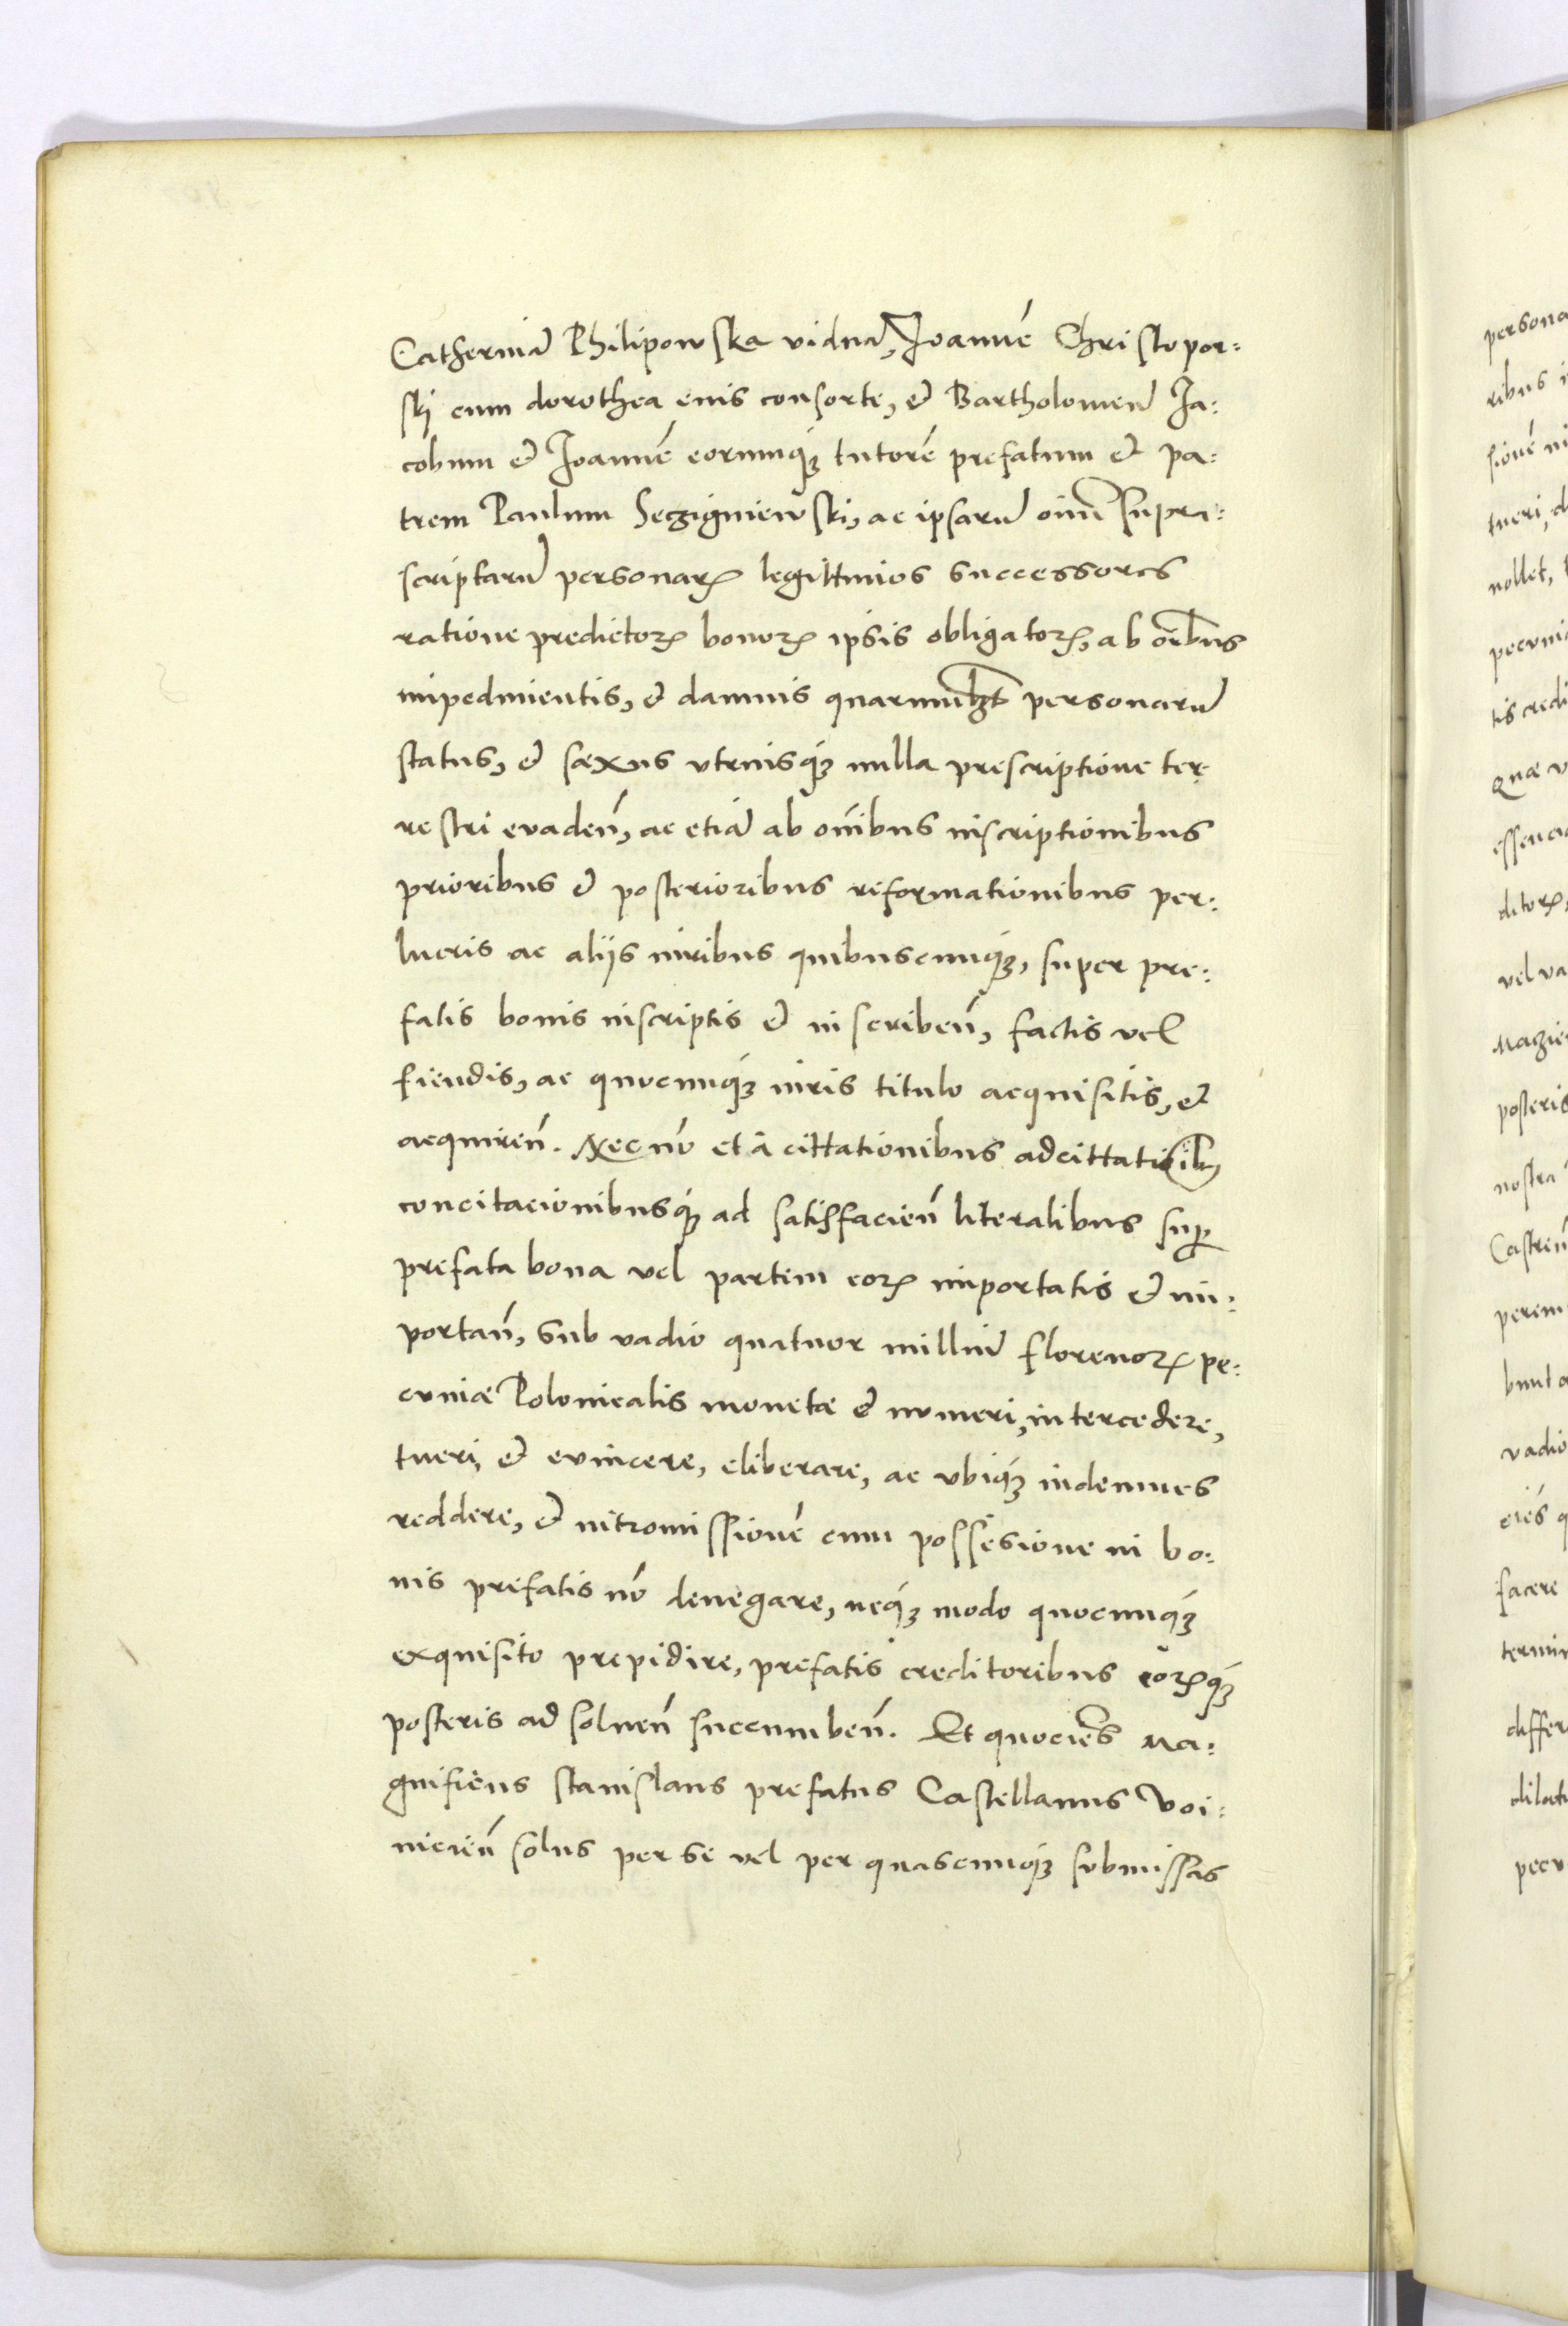 Catherinā Philipowska viduā, Joannē Christopor:
ski cum dorothea eius consorte, et Bartholomeū Ja:
cobum et Joannē eorumq3 tutorē prefatum et pa:
trem Paulum Seczigniewski, ac ipsarū oīm supra:
scriptarū personarꝝ legittimos successores
ratione predictorꝝ bonorꝝ ipsis obligatorꝝ, ab oībus
impedimentis, et damnis quarumlȝt personarū
status, et sæxus vtriusq3 nulla prescriptione ter
restri evadeñ, ac etiā ab om̄ibus inscriptionibus
prioribus et posterioribus reformationibus per:
lucris ac aliis iuribus quibuscumq3, super pre:
fatis bonis inscriptis et inscribeñ, factis vel
fiendis, ac quocumq3 iuris titulo acquisitis, et
acquireñ. Nec nō et à cittationibus adcittatioīb,
concitacionibusq3 ad satisfacieñ literalibus suꝑ
prefata bona vel partem eorꝝ importatis et im:
portañ, sub vadio quatuor milliū florenorꝝ pe:
cuniæ Polonicalis monetæ et numeri, intercedere,
tueri, et evincere, eliberare, ac ubiq3 indemnes
reddere, et intromissionē cum possesione in bo:
nis prefatis nō denegare, neq3 modo quocumq3
exquisito prepidire, prefatis creditoribus eorꝝq3
posteris ad solueñ succumbeñ. Et quocies̄ Ma:
gnificus stanislaus prefatus Castellanus Voi:
nicieñ solus per se vel per quascumq3 submissas
persona
ribus
sionē
tueri, d
nollet,
pecuni
tis credi
Quæ v
essen
ditorꝝ,
vel va
Magie
posteris
nostra
Castreñ
perem
bunt a
vadio
ciēs q
facere
termin
differ
dilat
pecu